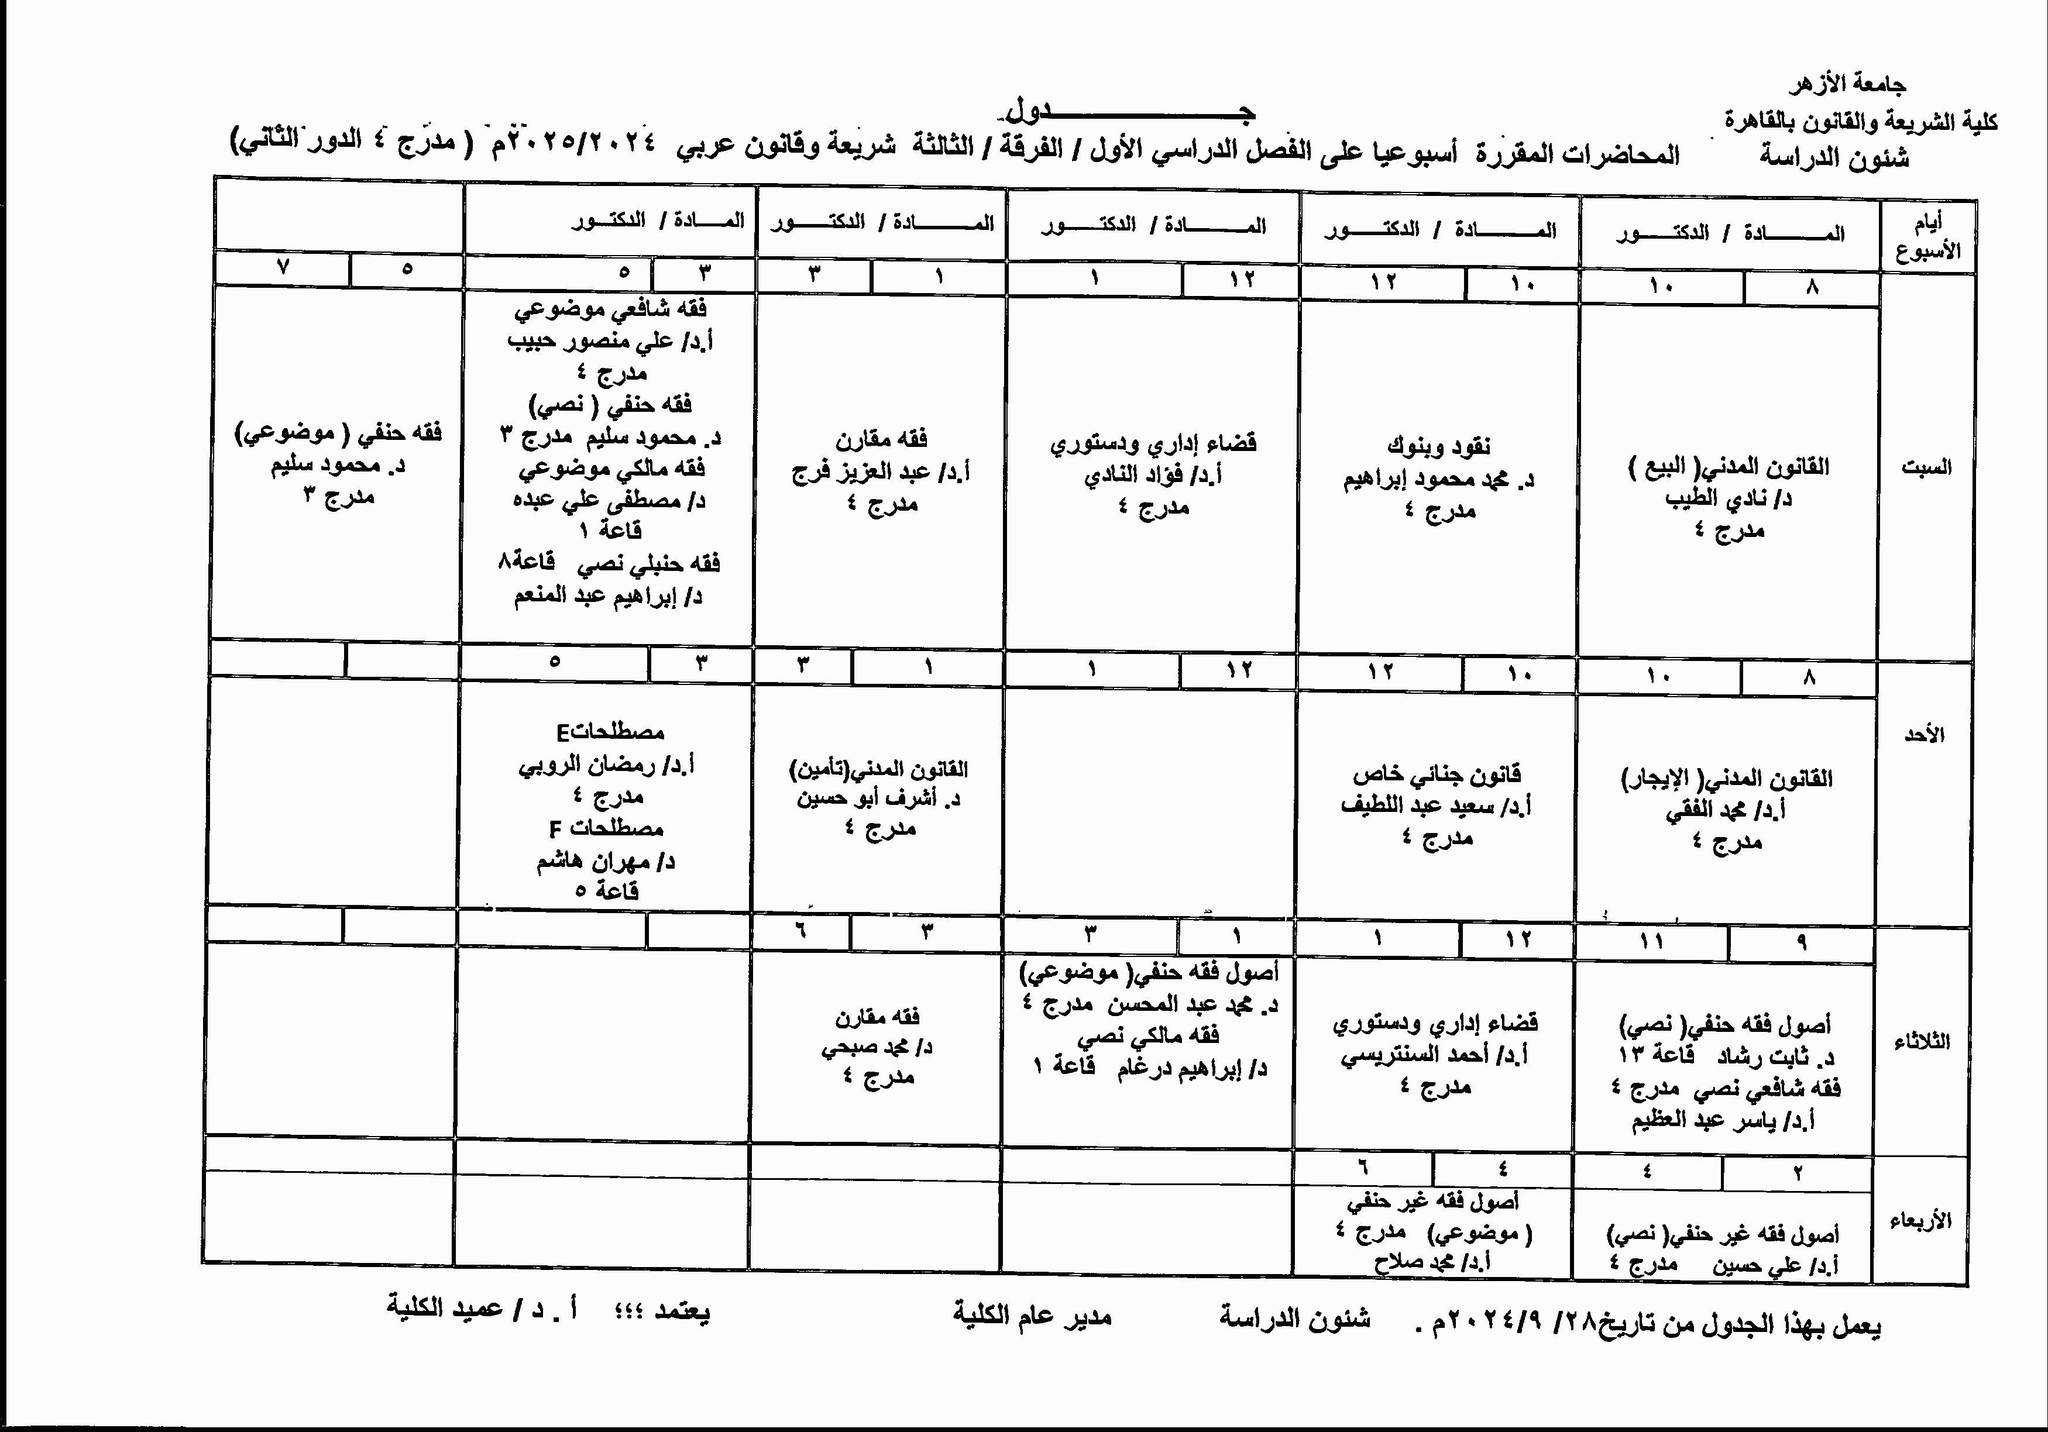 جامعة الأزهر
كلية الشريعة والقانون بالقاهرة
شئون الدراسة
جـــــدول
المحاضرات المقررة أسبوعيا على الفصل الدراسي الأول / الفرقة / الثالثة شريعة وقانون عربي ٢٠٢٥/٢٠٢٤م ( مدرج ٤ الدور الثاني)
أيام الأسبوع
المـــادة / الدكتـــور
المـــادة / الدكتـــور
المـــادة / الدكتـــور
المـــادة / الدكتـــور
المـــادة / الدكتـــور
السبت
٨ ١٠
١٠ ١٢
١٢ ١
١ ٣
٣ ٥
٥ ٧
القانون المدني( البيع )
د/ نادي الطيب
مدرج ٤
نقود وبنوك
د. محمد محمود إبراهيم
مدرج ٤
قضاء إداري ودستوري
أ.د/ فؤاد النادي
مدرج ٤
فقه مقارن
أ.د/ عبد العزيز فرج
مدرج ٤
فقه شافعي موضوعي
أ.د/ علي منصور حبيب
مدرج ٤
فقه حنفي ( نصي)
د. محمود سليم مدرج ٣
فقه مالكي موضوعي
د/ مصطفى علي عبده
قاعة ١
فقه حنبلي نصي قاعة٨
د/ إبراهيم عبد المنعم
فقه حنفي ( موضوعي)
د. محمود سليم
مدرج ٣
الأحد
٨ ١٠
١٠ ١٢
١٢ ١
١ ٣
٣ ٥
القانون المدني( الإيجار)
أ.د/ محمد الفقي
مدرج ٤
قانون جنائي خاص
أ.د/ سعيد عبد اللطيف
مدرج ٤
القانون المدني(تأمين)
د. أشرف أبو حسين
مدرج ٤
مصطلحاتE
أ.د/ رمضان الروبي
مدرج ٤
مصطلحات F
د/ مهران هاشم
قاعة ٥
الثلاثاء
٩ ١١
١٢ ١
١ ٣
٣ ٦
أصول فقه حنفي( نصي)
د. ثابت رشاد قاعة ١٣
فقه شافعي نصي مدرج ٤
أ.د/ ياسر عبد العظيم
قضاء إداري ودستوري
أ.د/ أحمد السنتريسي
مدرج ٤
أصول فقه حنفي( موضوعي)
د. محمد عبد المحسن مدرج ٤
فقه مالكي نصي
د/ إبراهيم درغام قاعة ١
فقه مقارن
د/ محمد صبحي
مدرج ٤
الأربعاء
٢ ٤
٤ ٦
أصول فقه غير حنفي( نصي)
أ.د/ علي حسين مدرج ٤
أصول فقه غير حنفي
( موضوعي) مدرج ٤
أ.د/ محمد صلاح
يعمل بهذا الجدول من تاريخ٢٨/ ٢٠٢٤/٩م . شئون الدراسة مدير عام الكلية يعتمد ؛؛؛ أ . د / عميد الكلية